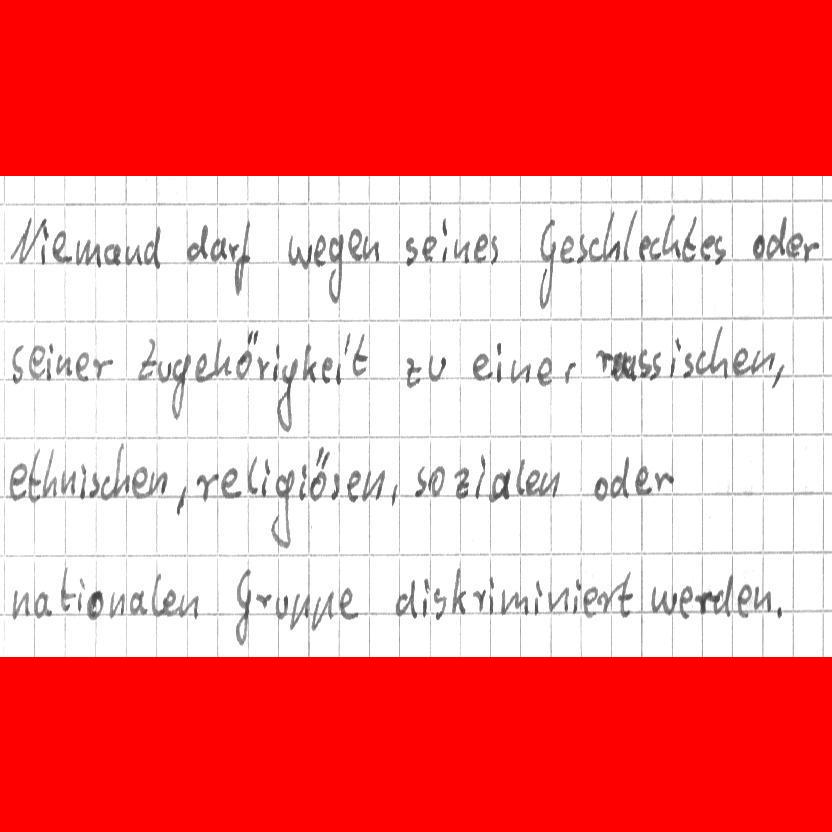 Niemand darf wegen seines Geschlechtes oder
seiner Zugehörigkeit zu einer russischen,
ethnischen, religiösen, sozialen oder
nationalen Gruppe diskriminiert werden.